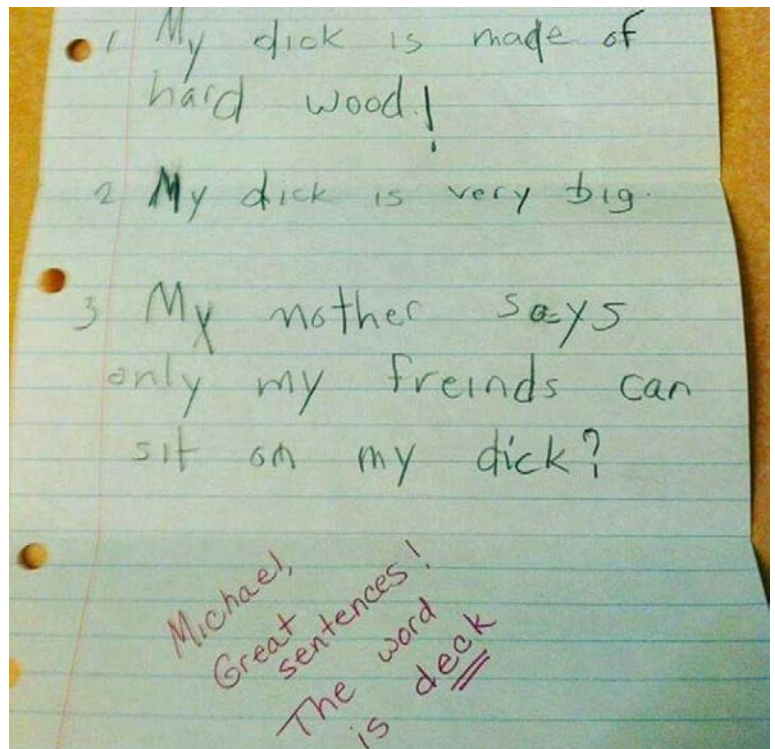 1 My dick is made of
hard wood!
2 My dick is very big.
3 My mother says
only my freinds can
sit on my dick?
Michael,
Great
sentences!
The word
is deck